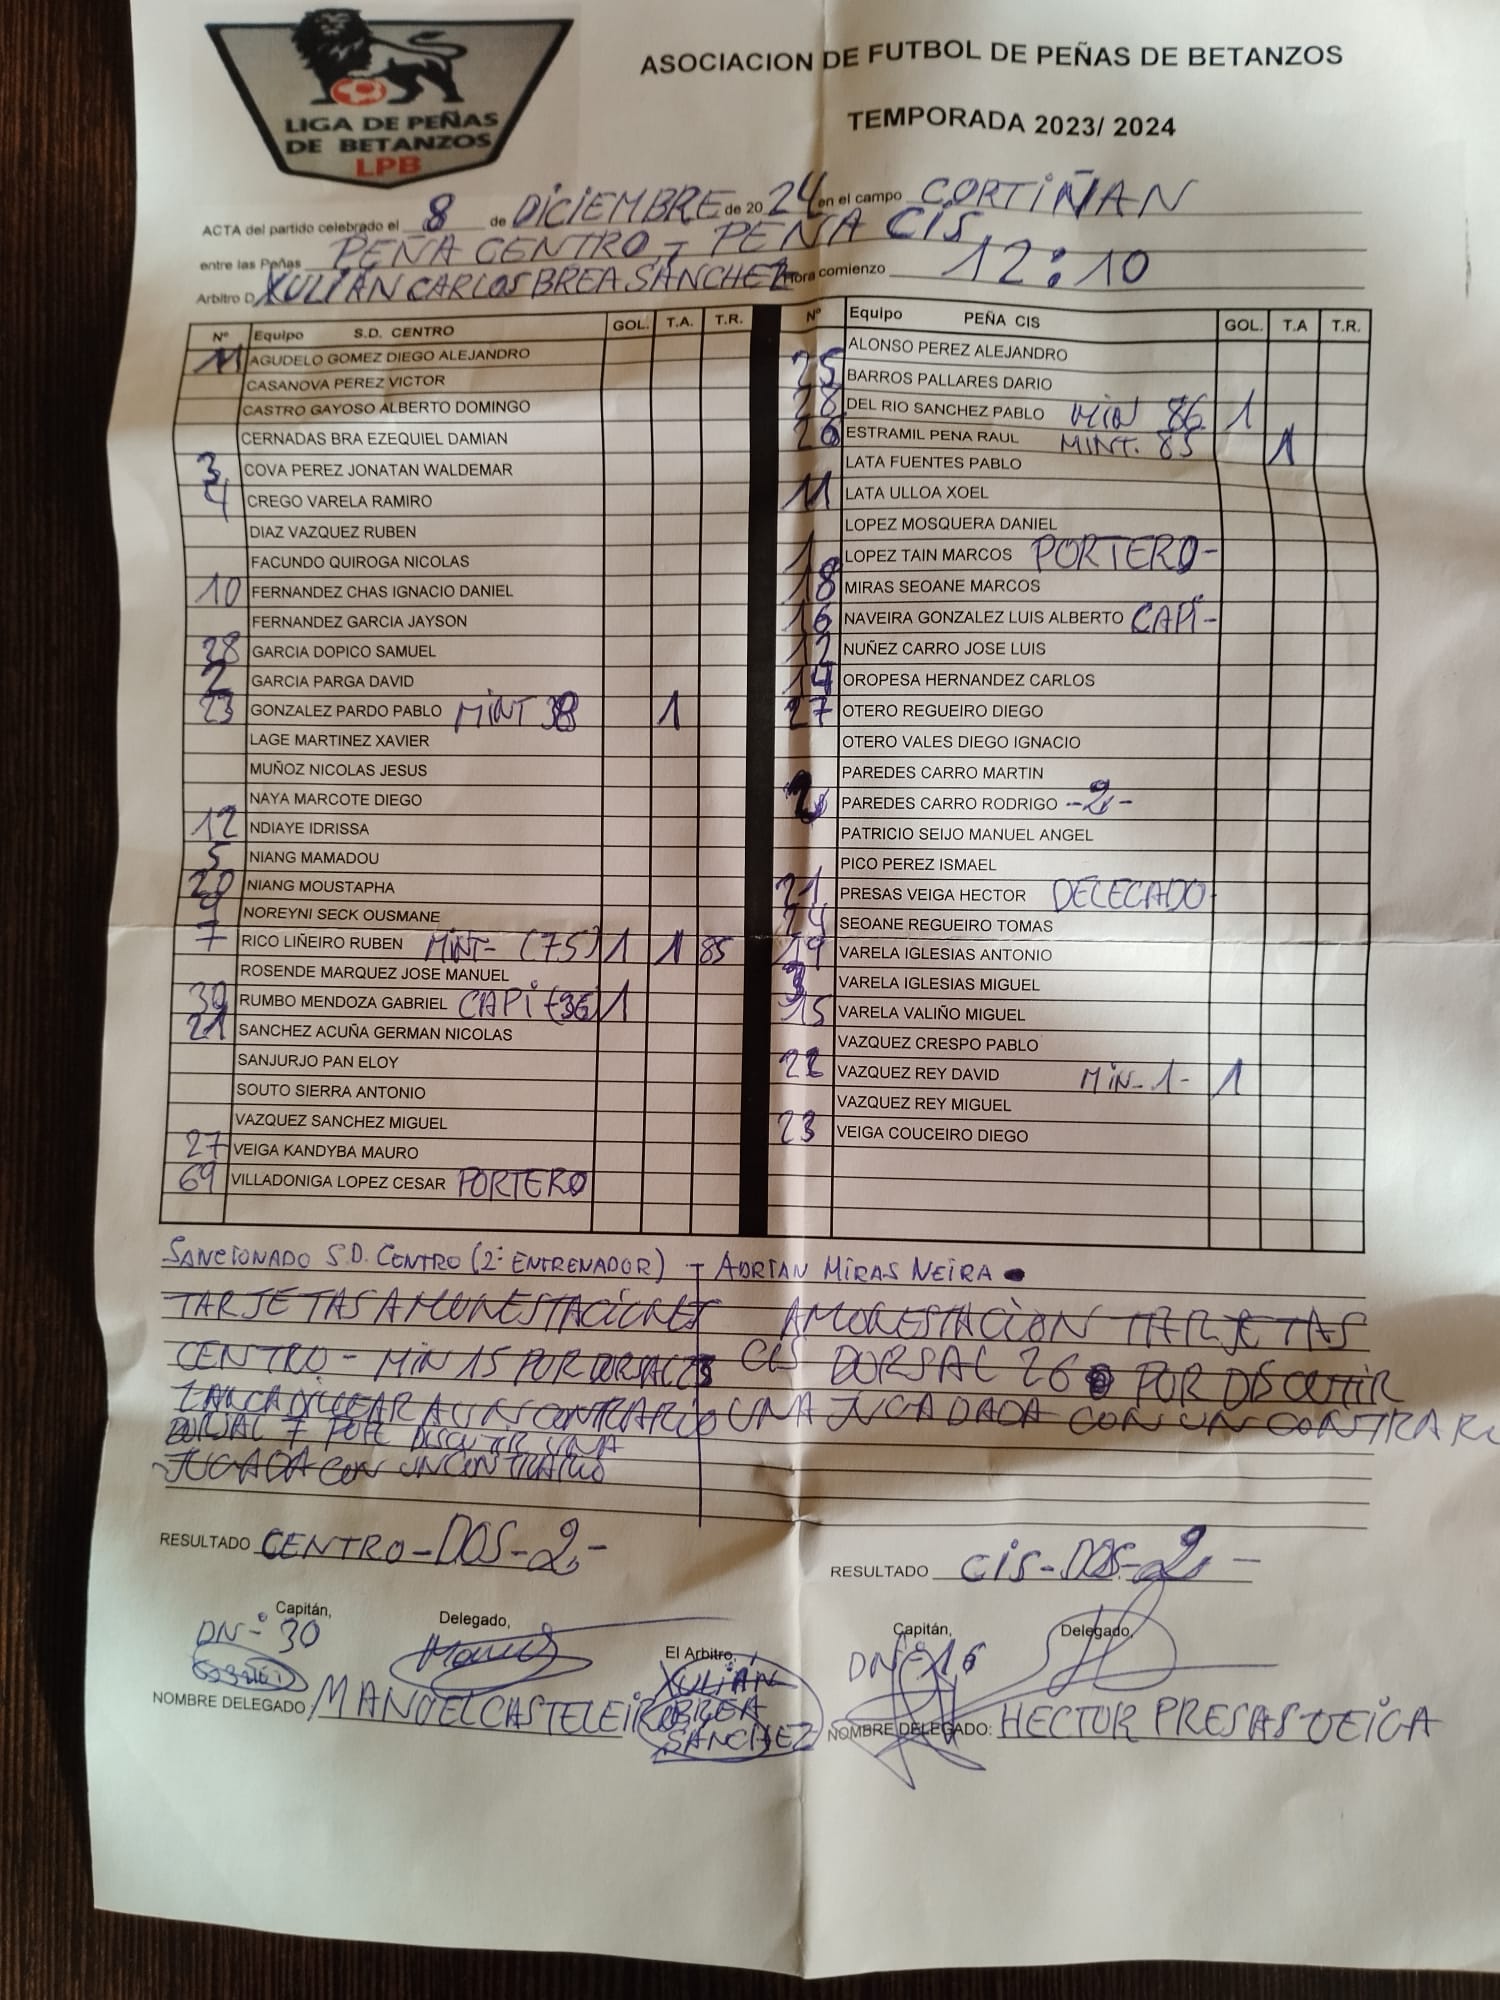 LIGA DE PEÑAS
DE BETANZOS
LPB
ASOCIACION DE FUTBOL DE PEÑAS DE BETANZOS
TEMPORADA 2023/ 2024
ACTA del partido celebrado el 8 de DICIEMBRE de 2024 en el campo CORTIÑAN
entre las Peñas PEÑA CENTRO - PEÑA CIS
Arbitro D. XULIÁN CARLOS BREA SÁNCHEZ Hora comienzo 12:10
Nº Equipo S.D. CENTRO GOL. T.A. T.R.
11 AGUDELO GOMEZ DIEGO ALEJANDRO
CASANOVA PEREZ VICTOR
CASTRO GAYOSO ALBERTO DOMINGO
CERNADAS BRA EZEQUIEL DAMIAN
3 COVA PEREZ JONATAN WALDEMAR
4 CREGO VARELA RAMIRO
DIAZ VAZQUEZ RUBEN
FACUNDO QUIROGA NICOLAS
10 FERNANDEZ CHAS IGNACIO DANIEL
FERNANDEZ GARCIA JAYSON
28 GARCIA DOPICO SAMUEL
2 GARCIA PARGA DAVID
23 GONZALEZ PARDO PABLO MINT 38 1
LAGE MARTINEZ XAVIER
MUÑOZ NICOLAS JESUS
NAYA MARCOTE DIEGO
12 NDIAYE IDRISSA
5 NIANG MAMADOU
20 NIANG MOUSTAPHA
9 NOREYNI SECK OUSMANE
7 RICO LIÑEIRO RUBEN MINT- (75) 1 1 85
ROSENDE MARQUEZ JOSE MANUEL
30 RUMBO MENDOZA GABRIEL CAPI (36) 1
21 SANCHEZ ACUÑA GERMAN NICOLAS
SANJURJO PAN ELOY
SOUTO SIERRA ANTONIO
VAZQUEZ SANCHEZ MIGUEL
27 VEIGA KANDYBA MAURO
69 VILLADONIGA LOPEZ CESAR PORTERO
Nº Equipo PEÑA CIS GOL. T.A T.R.
ALONSO PEREZ ALEJANDRO
25 BARROS PALLARES DARIO
28 DEL RIO SANCHEZ PABLO MIN 86 1
26 ESTRAMIL PENA RAUL MINT. 85 1
LATA FUENTES PABLO
11 LATA ULLOA XOEL
LOPEZ MOSQUERA DANIEL
1 LOPEZ TAIN MARCOS PORTERO-
18 MIRAS SEOANE MARCOS
16 NAVEIRA GONZALEZ LUIS ALBERTO CAPI-
12 NUÑEZ CARRO JOSE LUIS
14 OROPESA HERNANDEZ CARLOS
27 OTERO REGUEIRO DIEGO
OTERO VALES DIEGO IGNACIO
PAREDES CARRO MARTIN
2 PAREDES CARRO RODRIGO -2-
PATRICIO SEIJO MANUEL ANGEL
PICO PEREZ ISMAEL
21 PRESAS VEIGA HECTOR DELEGADO
24 SEOANE REGUEIRO TOMAS
19 VARELA IGLESIAS ANTONIO
3 VARELA IGLESIAS MIGUEL
15 VARELA VALIÑO MIGUEL
VAZQUEZ CRESPO PABLO
22 VAZQUEZ REY DAVID MIN-1- 1
VAZQUEZ REY MIGUEL
23 VEIGA COUCEIRO DIEGO
SANCIONADO S.D. CENTRO (2º ENTRENADOR) - ADRIAN MIRAS NEIRA
TARJETAS AMONESTACIONES
CENTRO - MIN 15 POR DORSAL 23
ZANCADILLEAR A UN CONTRARIO
DORSAL 7 POR DISCUTIR UNA
JUGADA CON UN CONTRARIO
AMONESTACION TARJETAS
CIS DORSAL 26 POR DISCUTIR
UNA JUGADADA CON UN CONTRARI
RESULTADO CENTRO-DOS-2-
RESULTADO CIS-DOS-2-
Capitán, Delegado,
DN-º 30
El Arbitro,
XULIÁN
BREA
SANCHEZ
Capitán, Delegado,
DNº 16
NOMBRE DELEGADO MANOEL CASTELEIRO
NOMBRE DELEGADO: HECTOR PRESAS VEIGA